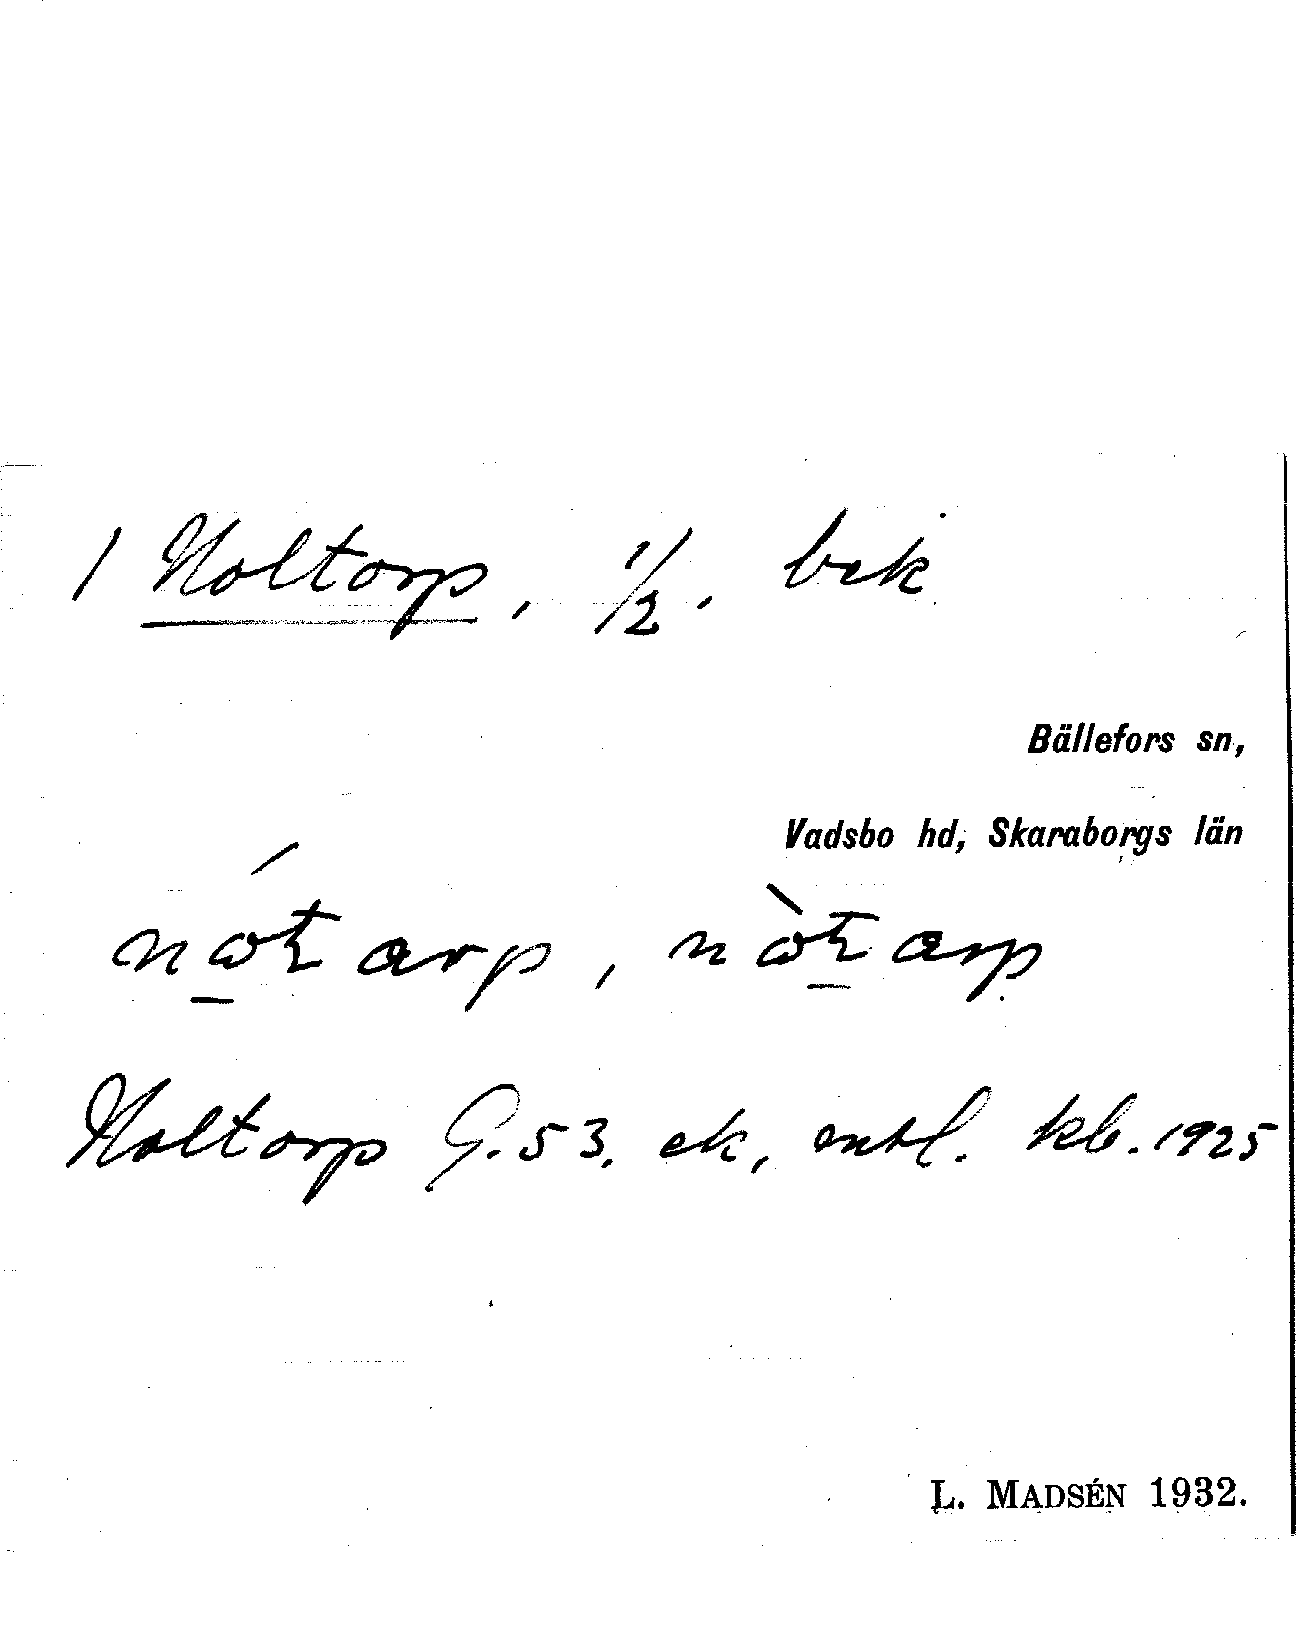 1 Noltorp, 1/2. bek
Bällefors sn,
Vadsbo hd, Skaraborgs län
Noltorp G. 53. ek, entl. kb. 1925
L. MADSÉN 1932.